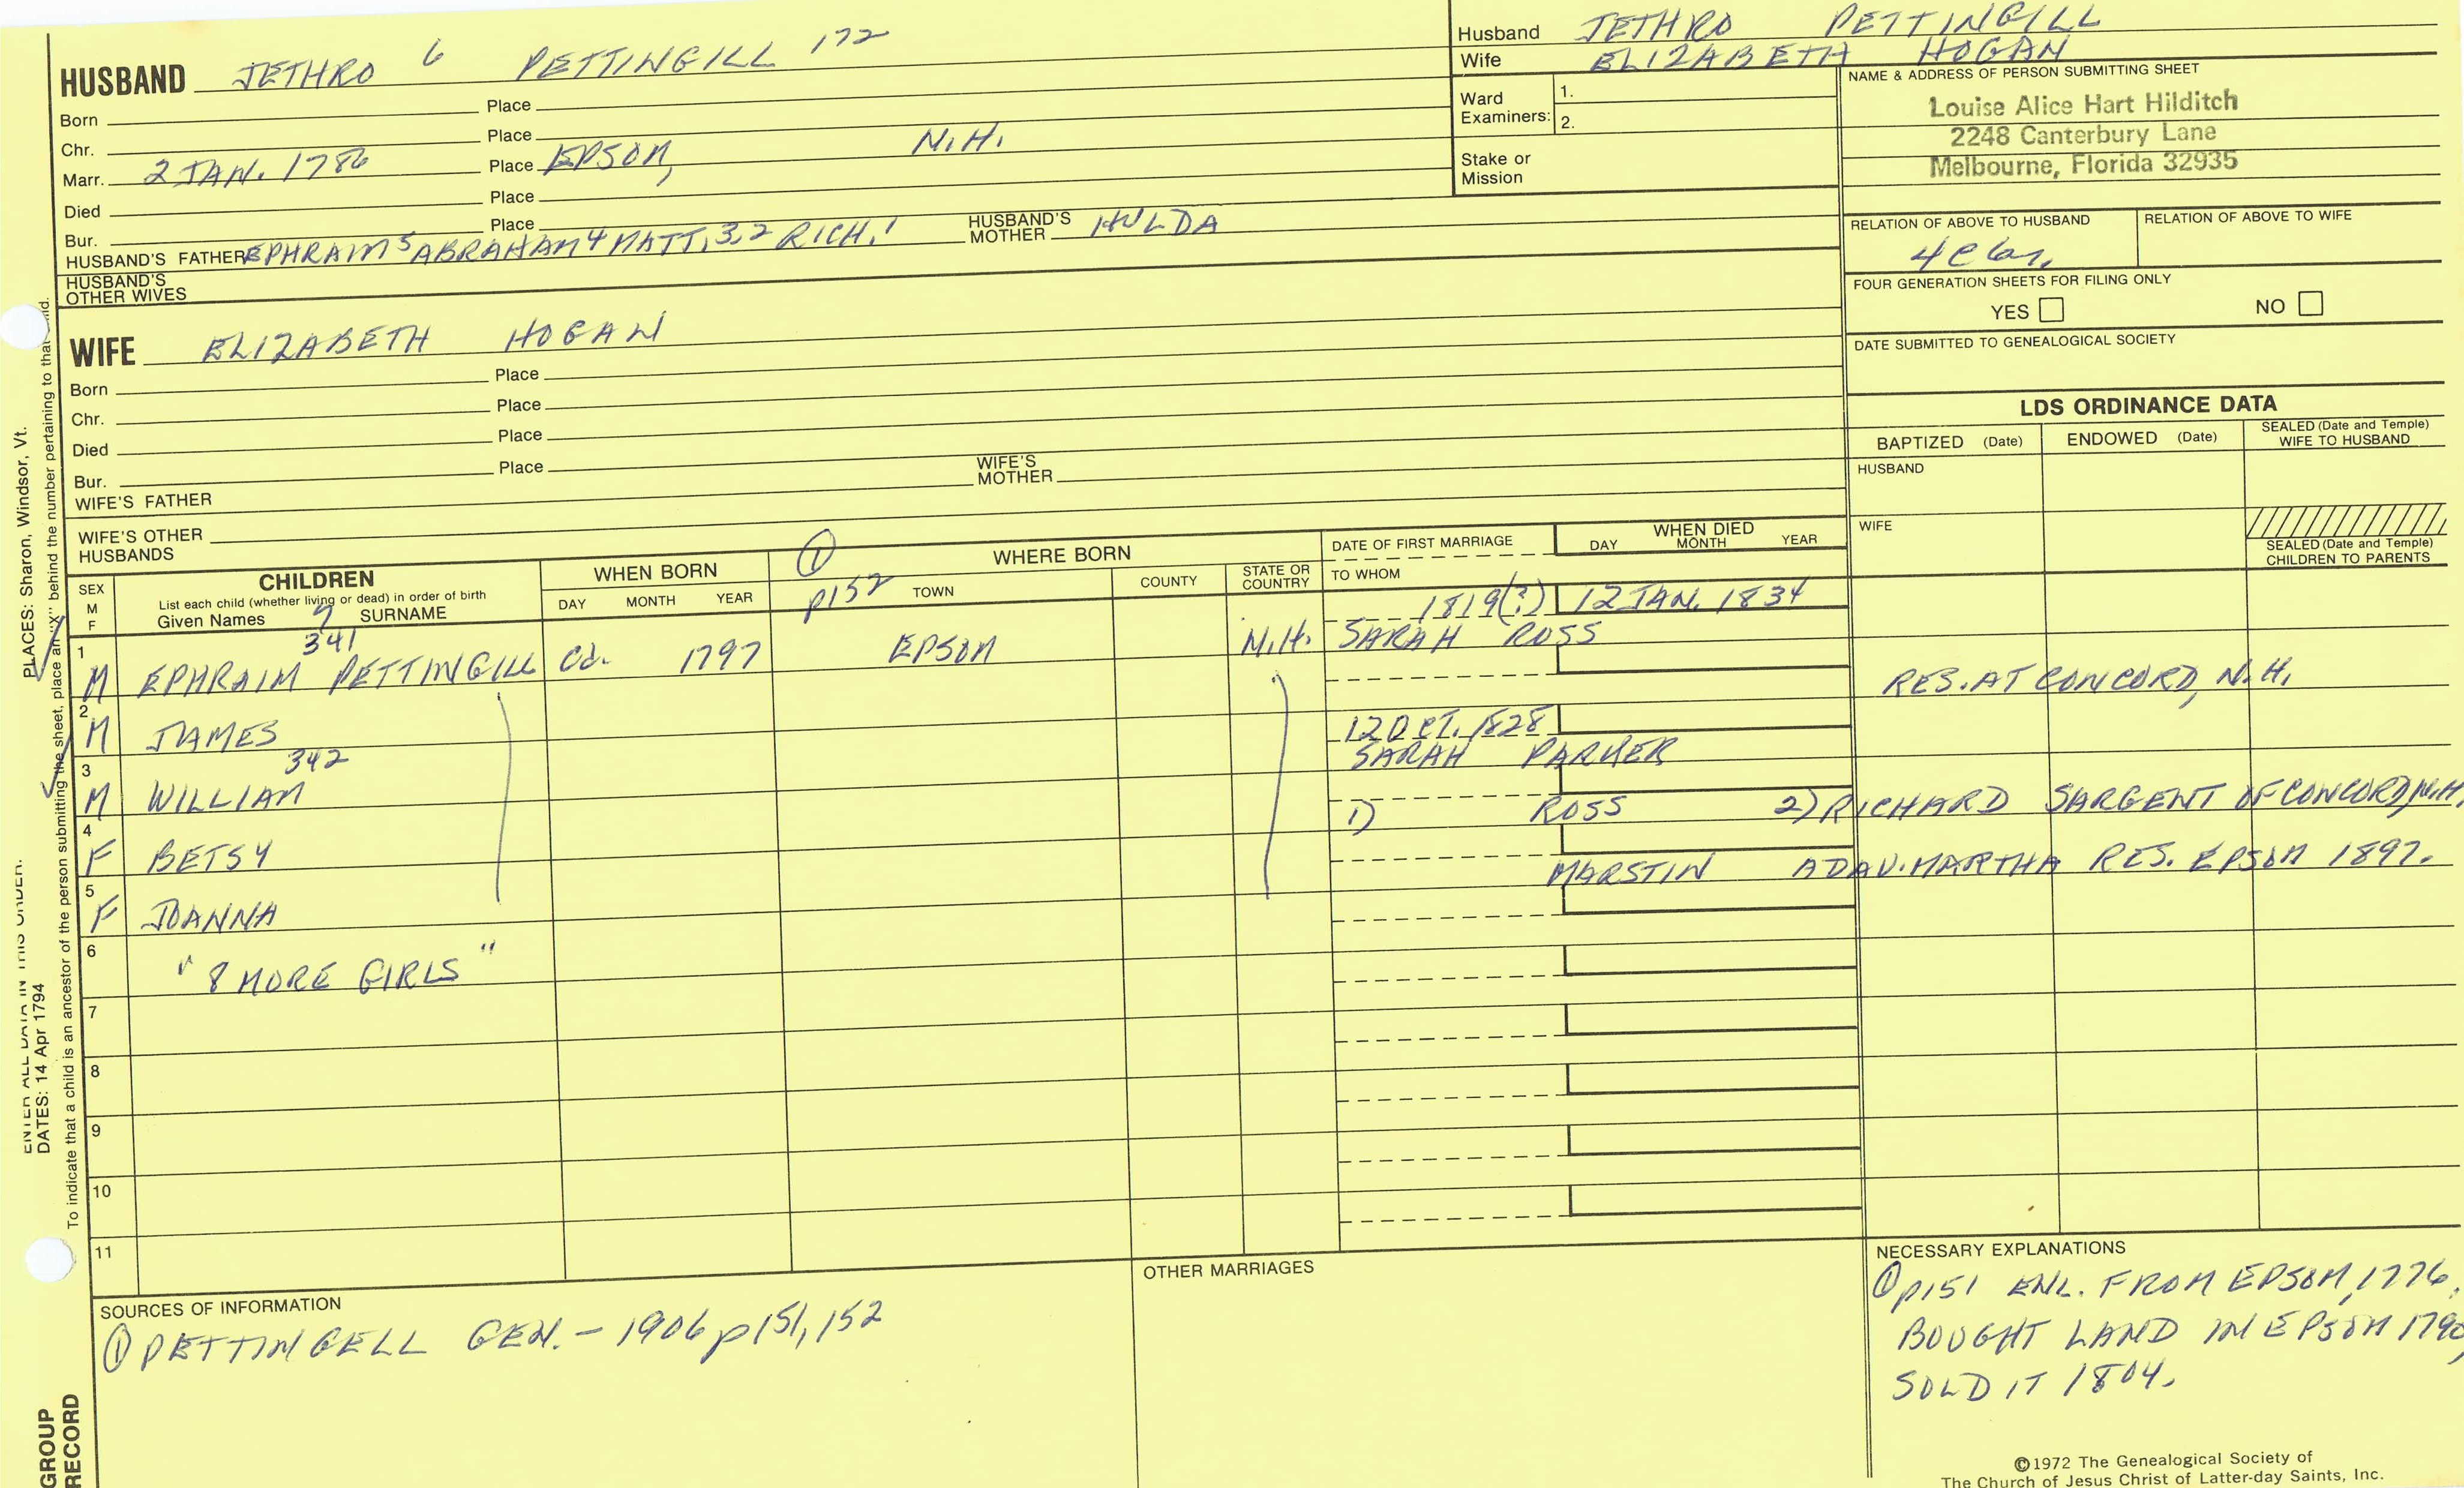 HUSBAND JETHRO 6 PETTINGILL 172
Born Place
Chr. Place
Marr. 2 JAN. 1786 Place EPSOM, N.H.
Died Place
Bur. Place
HUSBAND'S FATHER EPHRAIM 5 ABRAHAM 4 MATT. 3,2 RICH. 1 HUSBAND'S MOTHER HULDA
HUSBAND'S
OTHER WIVES
Husband JETHRO PETTINGILL
Wife ELIZABETH HOGAN
Ward
Examiners: 1.
2.
Stake or
Mission
NAME & ADDRESS OF PERSON SUBMITTING SHEET
Louise Alice Hart Hilditch
2248 Canterbury Lane
Melbourne, Florida 32935
RELATION OF ABOVE TO HUSBAND RELATION OF ABOVE TO WIFE
FOUR GENERATION SHEETS FOR FILING ONLY
YES NO
DATE SUBMITTED TO GENEALOGICAL SOCIETY
WIFE ELIZABETH HOGAN
Born Place
Chr. Place
Died Place
Bur. Place
WIFE'S FATHER WIFE'S MOTHER
WIFE'S OTHER
HUSBANDS
LDS ORDINANCE DATA
BAPTIZED (Date) ENDOWED (Date) SEALED (Date and Temple) WIFE TO HUSBAND
HUSBAND
WIFE
SEALED (Date and Temple)
CHILDREN TO PARENTS
SEX
M
F
CHILDREN
List each child (whether living or dead) in order of birth
Given Names 7 SURNAME
WHEN BORN
DAY MONTH YEAR
1 p152
WHERE BORN
TOWN COUNTY STATE OR COUNTRY
DATE OF FIRST MARRIAGE
TO WHOM
WHEN DIED
DAY MONTH YEAR
341 1819(?) 12 JAN. 1834
1 M EPHRAIM PETTINGILL Cd. 1797 EPSOM N.H. SARAH ROSS
2 M JAMES RES. AT CONCORD, N.H.
342 12 OCT. 1828
3 M WILLIAM SARAH PARKER
4 F BETSY 1) ROSS 2) RICHARD SARGENT OF CONCORD, N.H.
5 F JOANNA MARSTIN A DAU. MARTHA RES. EPSOM 1897.
6 "8 MORE GIRLS"
7
8
9
10
11
SOURCES OF INFORMATION
1 PETTINGELL GEN. - 1906 p151, 152
OTHER MARRIAGES
NECESSARY EXPLANATIONS
1 p151 ENL. FROM EPSOM, 1776,
BOUGHT LAND IN EPSOM 1790,
SOLD IT 1804.
©1972 The Genealogical Society of
The Church of Jesus Christ of Latter-day Saints, Inc.
PLACES: Sharon, Windsor, Vt.
ENTER ALL DATA IN THIS ORDER:
DATES: 14 Apr 1794
To indicate that a child is an ancestor of the person submitting the sheet, place an "X" behind the number pertaining to that child.
GROUP
RECORD